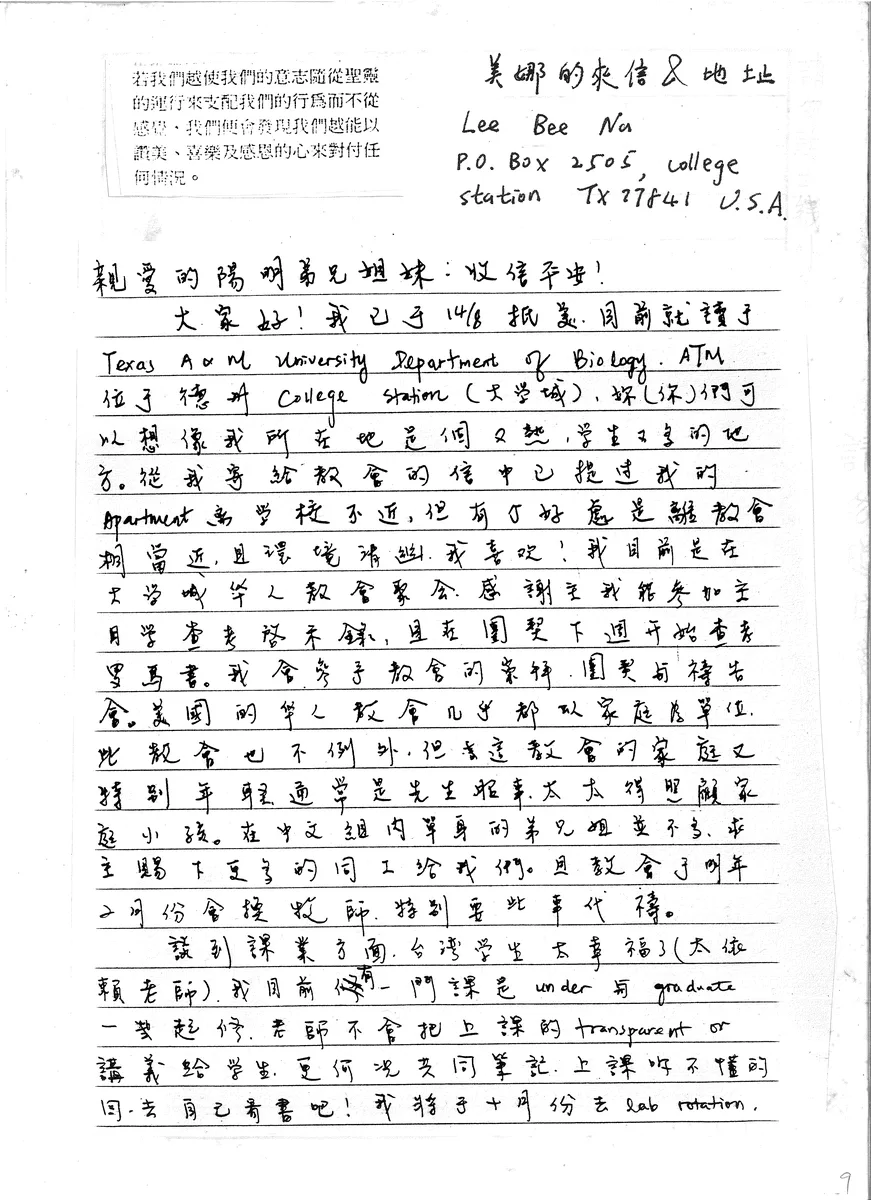 若我們越使我們的意志隨從聖靈
的運行來支配我們的行為而不從
感覺、我們便會發現我們越能以
讚美、喜樂及感恩的心來對付任
何情況。
美娜的來信&地址
Lee Bee Na
P.O. Box 2505, College
station TX 77841 U.S.A.
親愛的陽明弟兄姐妹：收信平安！
大家好！我已于14/8抵美.目前就讀于
Texas A&M University Department of Biology. ATM
位于德州 College station (大学城)、妳(你)們可
以想像我所在地是個又熱，学生又多的地
方。從我寄給教會的信中已提过我的
Apartment 离学校不近，但有个好處是離教會
相當近，且環境清幽.我喜欢！我目前是在
大学城华人教會聚会.感謝主我能參加主
日学查考啓示錄，且在團契下週开始查考
罗馬書。我會參予教會的崇拜.團契与禱告
會。美國的华人教會几乎都以家庭為單位.
此教會也不例外，但這教會的家庭又
特別年輕通常是先生服事.太太得照顧家
庭小孩。在中文組內單身的弟兄姐並不多.求
主賜下更多的同工給我們。且教會于明年
2月份會換牧師.特別要此事代禱。
談到課業方面.台湾学生太幸福了(太依
賴老師).我目前有一門課是 under 与 graduate
一起修.老師不會把上課的 transparent or
講義給学生.更何况共同筆記.上課听不懂的
回.去自己看書吧！我将于十月份去 lab rotation.
9